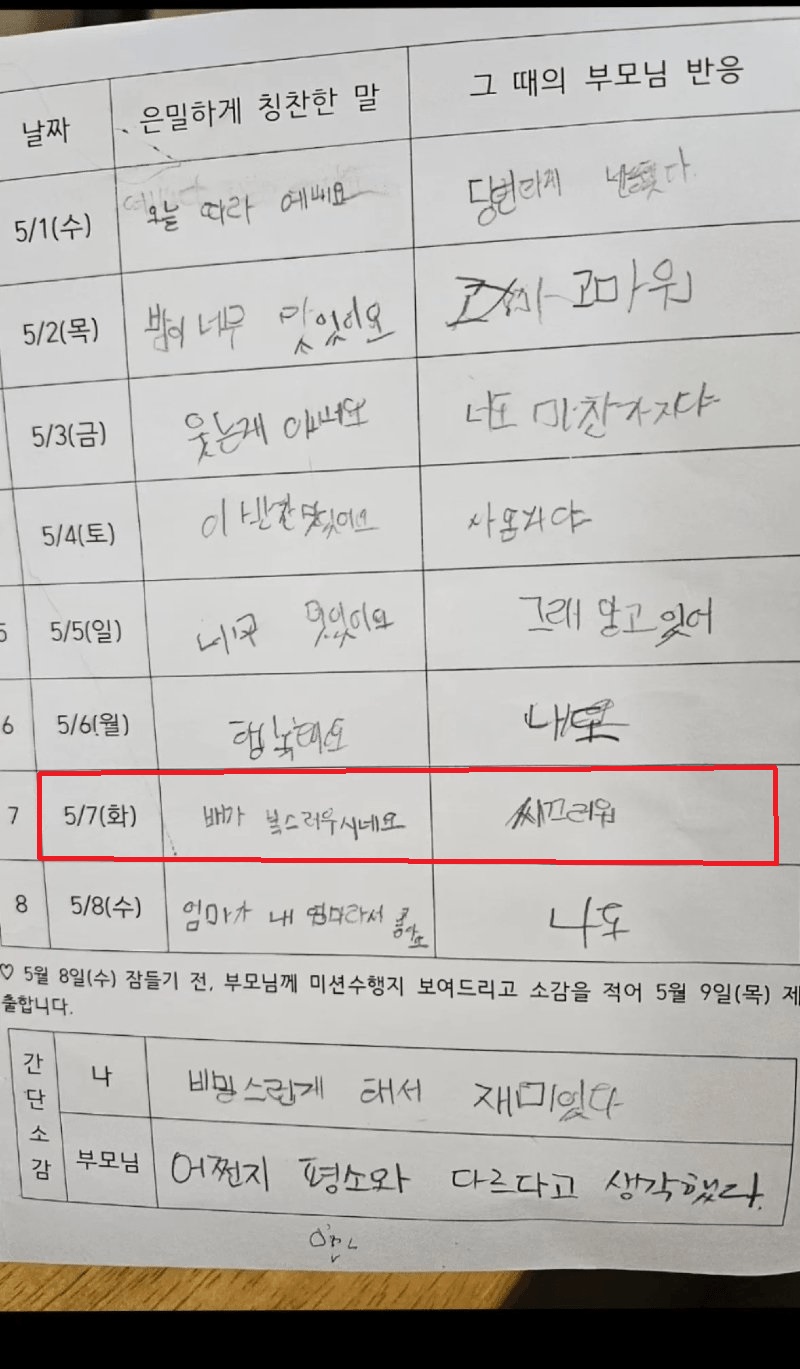 날짜 은밀하게 칭찬한 말 그 때의 부모님 반응
5/1(수) 오늘 따라 예뻐요 당번하게
5/2(목) 밥이 너무 맛있이요 고마워
5/3(금) 웃는게 너도 마찬가지야
5/4(토) 이 반찬 맛있어요
5 5/5(일) 그래 알고 있어
6 5/6(월) 내도
7 5/7(화) 배가 복스러우시네요 씨끄러워
8 5/8(수) 엄마가 내 엄마라서 좋아요 나도
♡ 5월 8일(수) 잠들기 전, 부모님께 미션수행지 보여드리고 소감을 적어 5월 9일(목) 제
출합니다.
간단소감
나 비밍스런게 해서 재미있다
부모님 어쩐지 평소와 다르다고 생각했다.